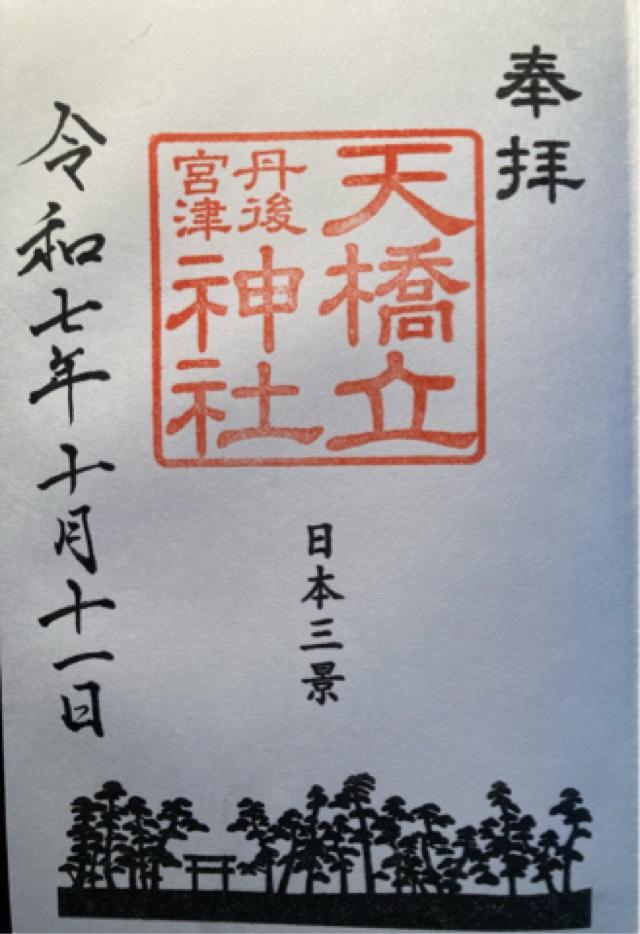 奉拝
天橋立
丹後
宮津
神社
日本三景
令和七年十月十一日